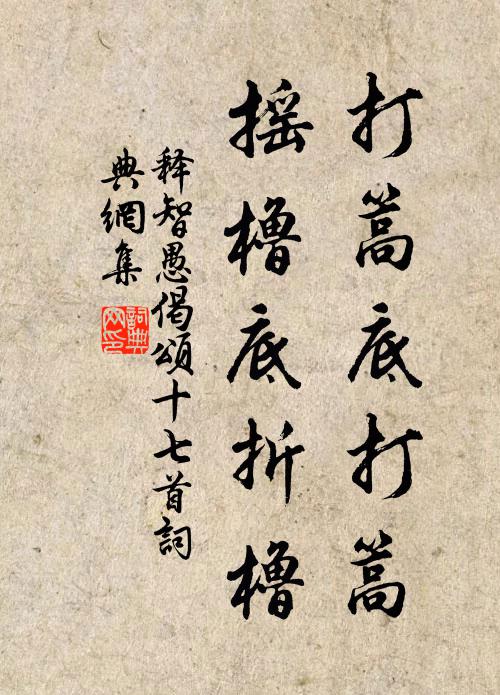 打篙底打篙
摇櫓底折櫓
释智愚偈頌十七首詞
典網集
詞典網印